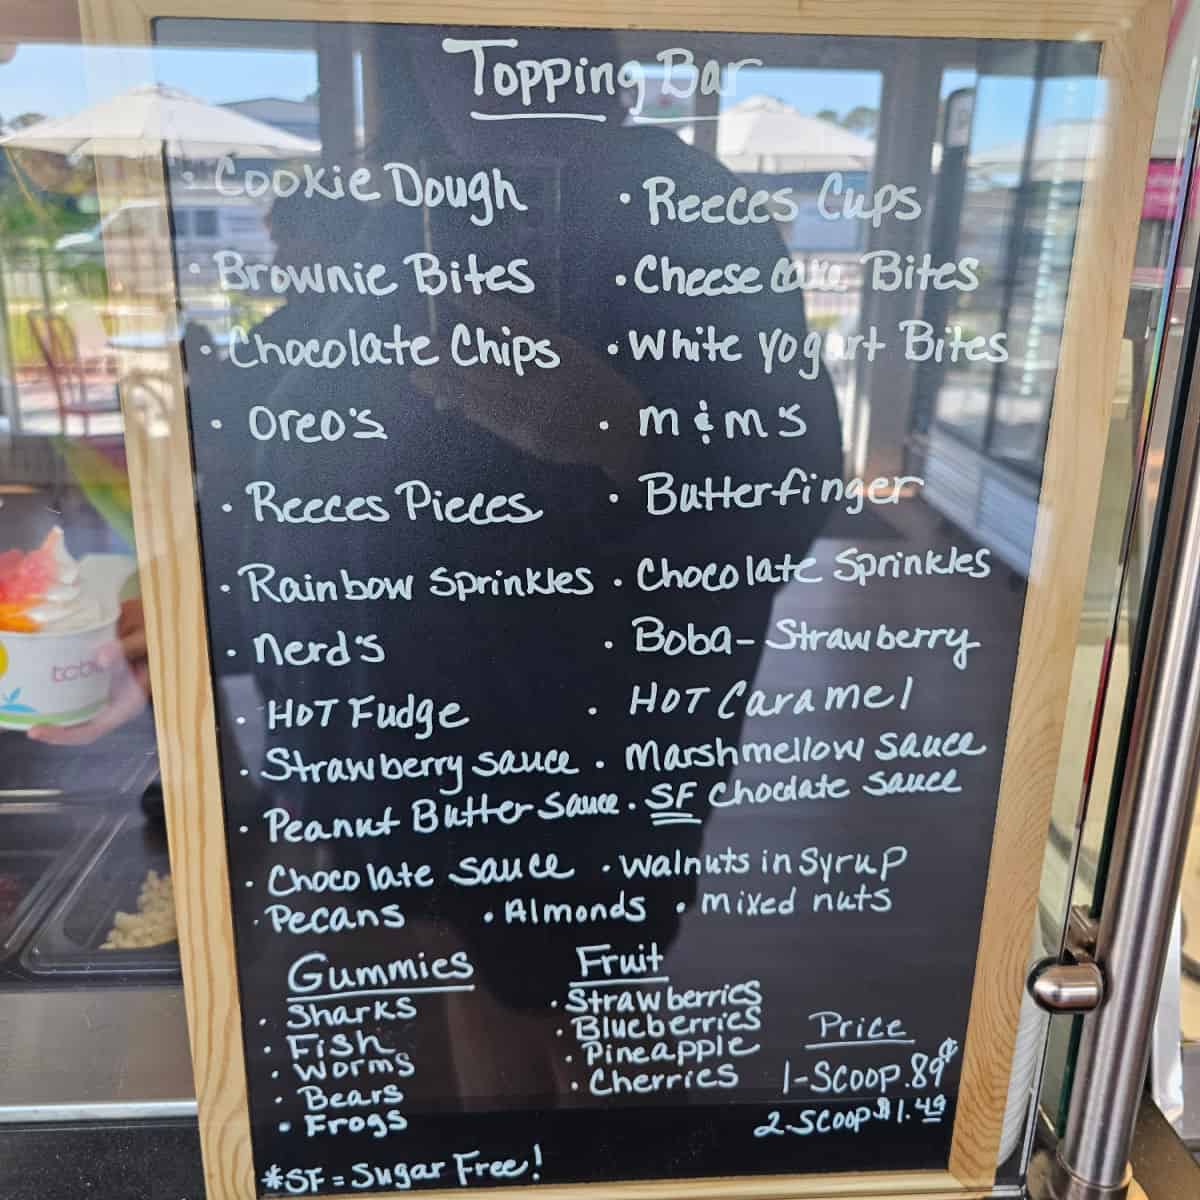 Topping Bar
• Cookie Dough • Reeces Cups
• Brownie Bites • Cheese cake Bites
• Chocolate Chips • White Yogurt Bites
• Oreo's • m & m's
• Reeces Pieces • Butterfinger
• Rainbow Sprinkles • Chocolate Sprinkles
• Nerd's • Boba - Strawberry
• HOT Fudge • HOT Caramel
• Strawberry sauce • Marshmellow sauce
• Peanut Butter Sauce • SF Chocolate sauce
• Chocolate sauce • walnuts in Syrup
• Pecans • Almonds • mixed nuts
Gummies
• Sharks
• Fish
• Worms
• Bears
• Frogs
Fruit
• Strawberries
• Blueberries
• Pineapple
• Cherries
Price
1-Scoop .89¢
2-Scoop $1.49
*SF = Sugar Free!